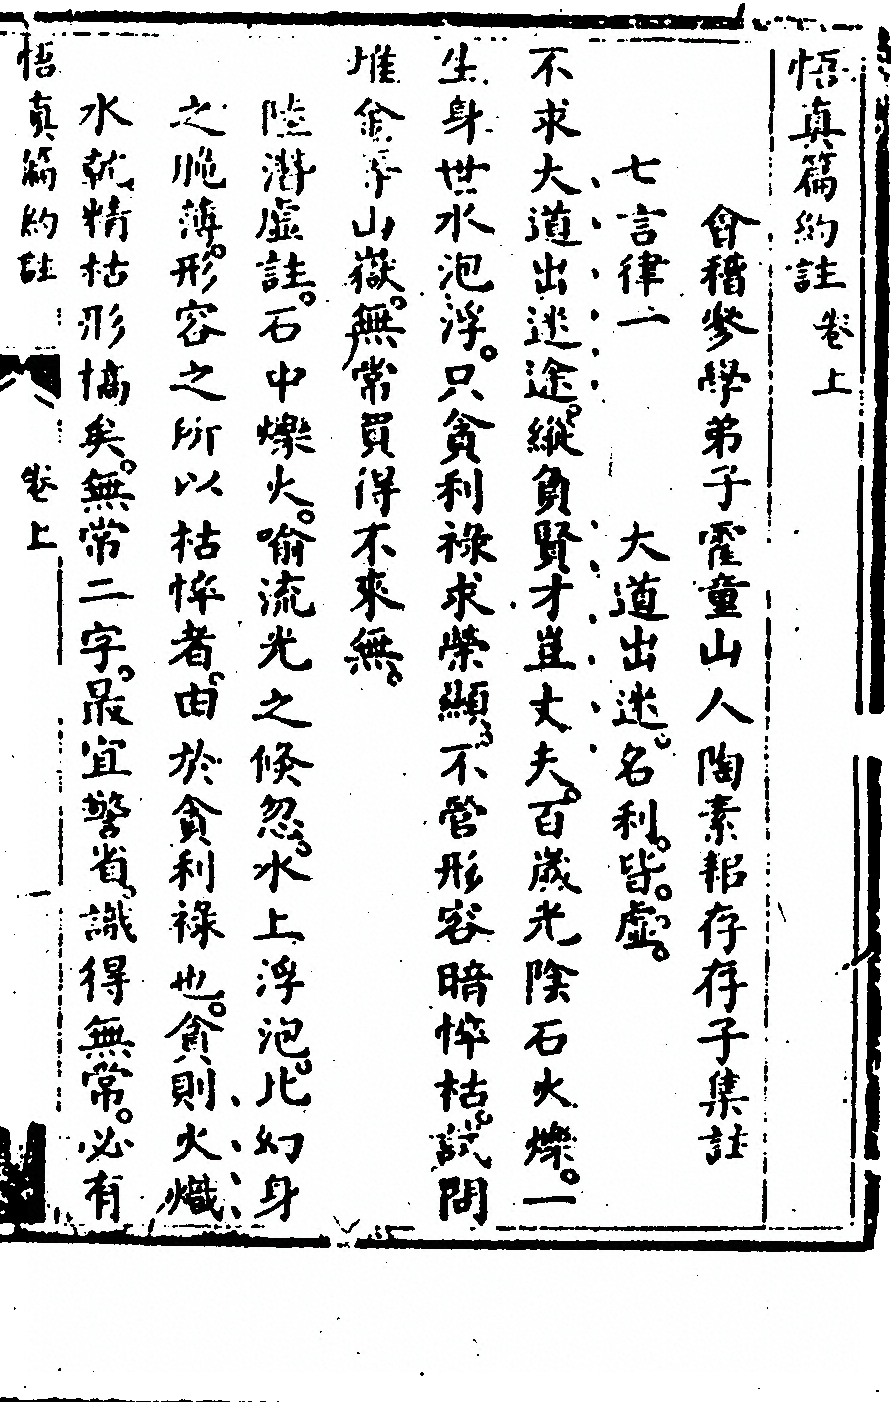 悟真篇約註 卷上
會稽參學弟子霍童山人陶素耜存存子集註
七言律一 大道出迷名利皆虛
不求大道出迷途縱負賢才豈丈夫百歲光陰石火爍一
生身世水泡浮只貪利祿求榮顯不管形容暗悴枯試問
堆金等山嶽無常買得不來無
陸潛虛註石中爍火喻流光之倏忽水上浮泡比幻身
之脆薄形容之所以枯悴者由於貪利祿也貪則火熾
水就精枯形槁矣無常二字最宜警省識得無常必有
悟真篇約註 卷上